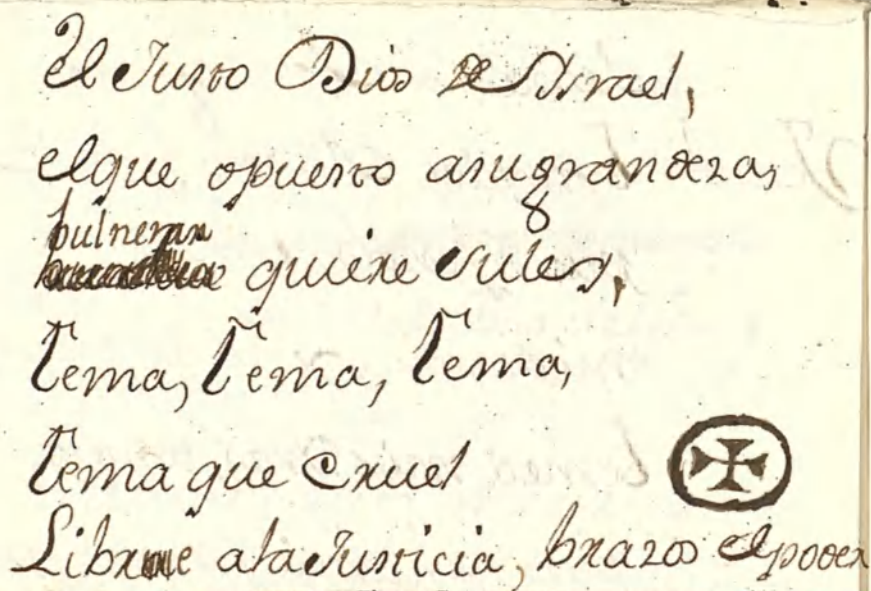 el Justo Dios de Ysrael,
el que opuesto asugrandeza,
bulnerar
quiere suley,
tema, tema, tema,
tema que cruel
Librue ala Justicia, brazos elpoder